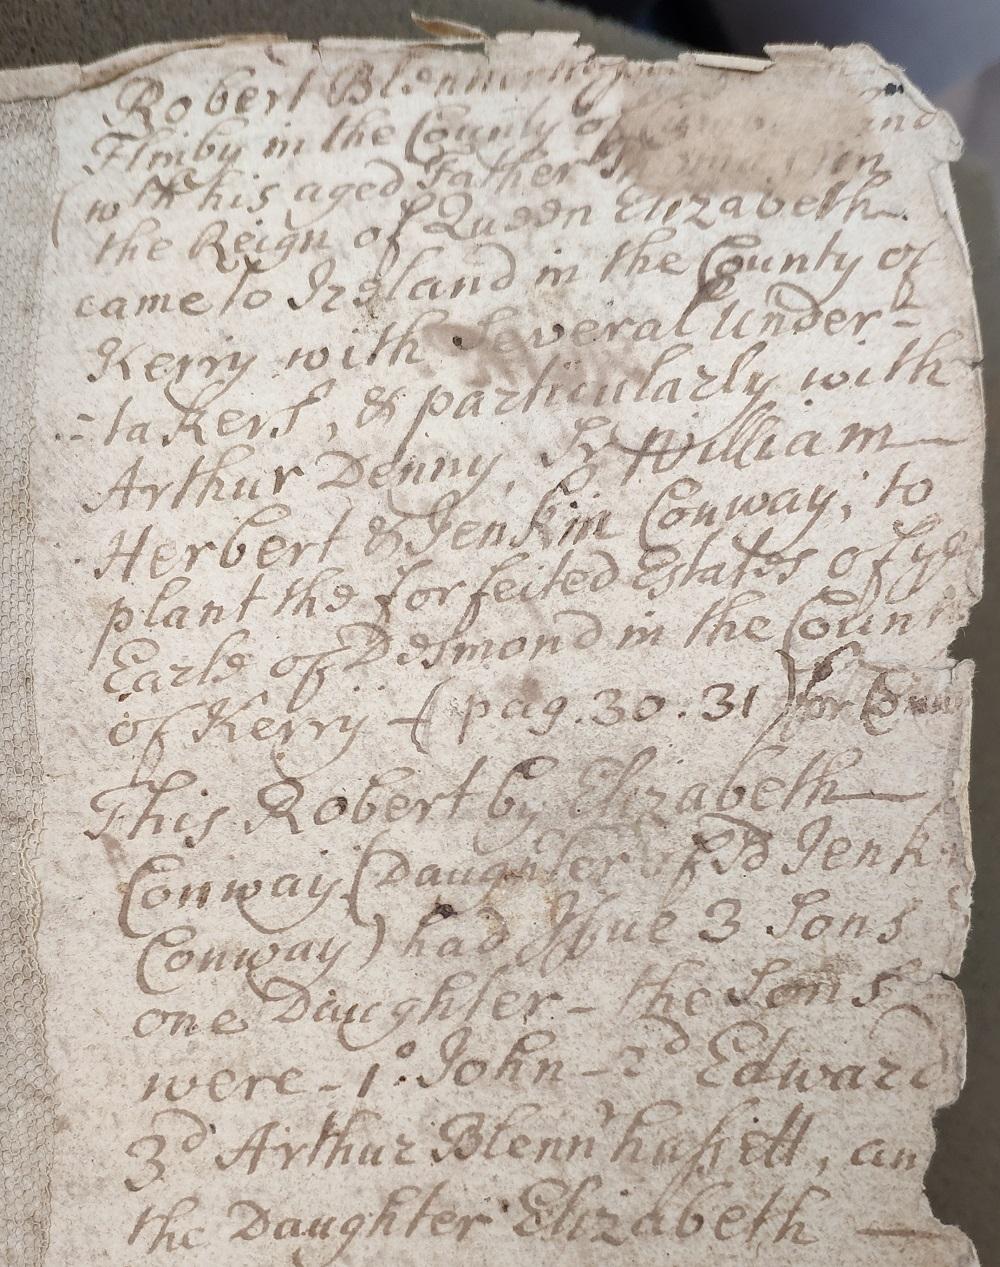 Robert Blennerhass
Flimby in the County of and
(wth his aged Father in
the Reign of Queen Elizabeth
came to Ireland in the County of
Kerry with Several Under-
-takers, & particularly with
Arthur Denny, Sr William
Herbert & Jenkin Conway; to
plant the forfeited Estates of ye
Earls of Desmond in the Count
of Kerry - (pag. 30. 31) for
This Robert by Elizabeth
Conway (Daughter of sd Jenk
Conway) had Issue 3 Sons
one Daughter - the Sons
were - 1o John - 2d Edward
3d Arthur Blenn'hassett, an
the Daughter Elizabeth